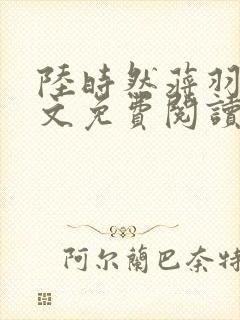 陸時然蔣羽
文免費閱讀
阿尔蘭巴奈特